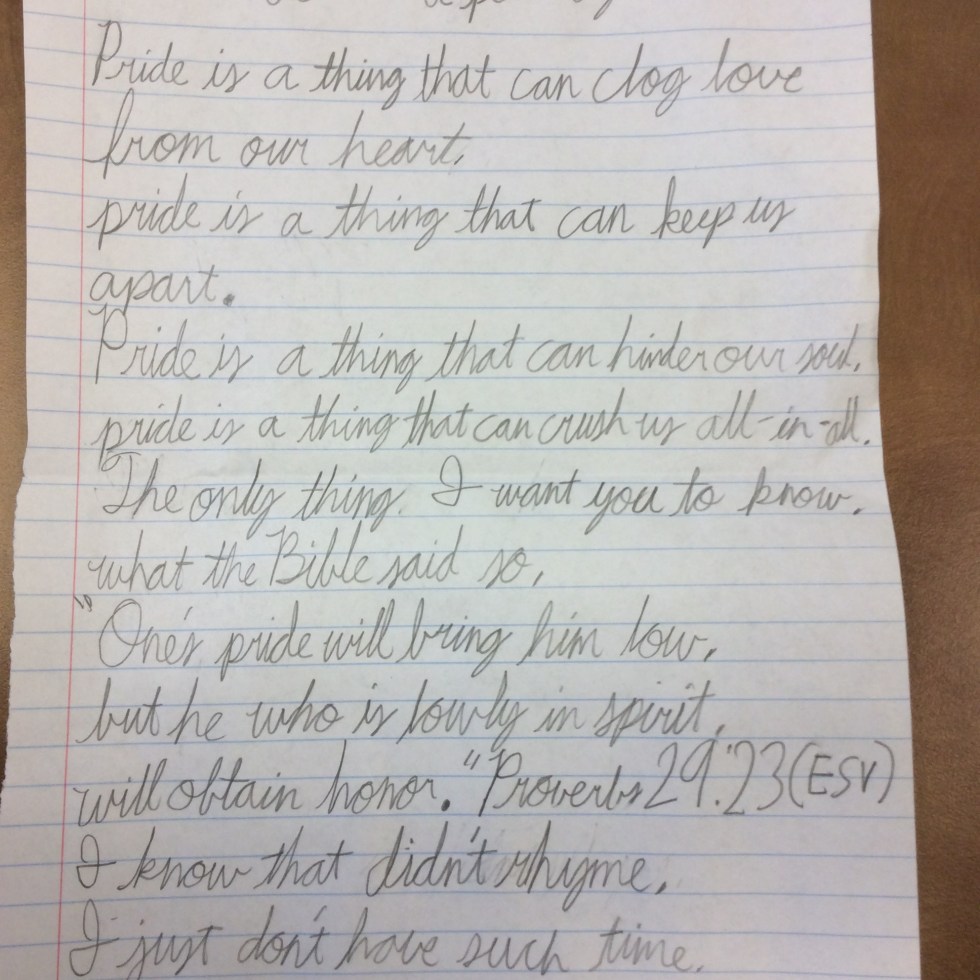 Pride is a thing that can clog love
from our heart,
pride is a thing that can keep us
apart.
Pride is a thing that can hinder our soul,
pride is a thing that can crush us all-in-all.
The only thing. I want you to know.
what the Bible said so,
"One's pride will bring him low,
but he who is lowly in spirit,
will obtain honor." Proverbs 29:23 (ESV)
I know that didn't rhyme,
I just don't have such time.